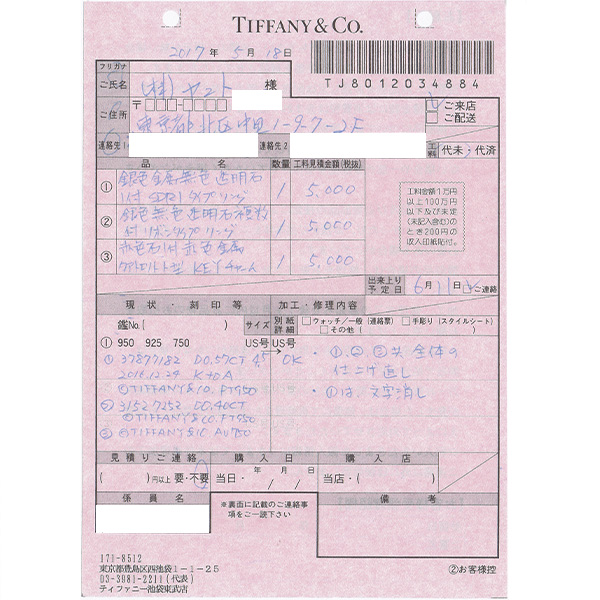 TIFFANY & CO.
2017年 5月 18日
TJ8012034884
フリガナ
ご氏名 (株)ヤマト 様
ご来店
ご配送
ご住所 〒
東京都北区中里1-9-7-2F
連絡先1
連絡先2
工料 代未・代済
品名 数量 工料見積金額(税抜)
① 銀色金属無色透明石
1付SDRIタイプリング 1 5,000
② 銀色無色透明石複数
付リボンタイプリング 1 5,000
③ 赤色石1付赤色金属
KEYチャーム 1 5,000
工料金額1万円
以上100万円
以下及び未定
(未記入含む)の
とき200円の
収入印紙貼付。
出来上り
予定日 6月11日 ご連絡
現状・刻印等
加工・修理内容
鑑No.( )
サイズ
別紙
詳細
ウォッチ/一般(連絡票)
手彫り(スタイルシート)
その他( )
① 950 925 750
US号 US号
① 37897182 D0.57CT 4.5→OK
2016.12.24 K to A
©TIFFANY&CO. PT950
② 31527252 D0.40CT
©TIFFANY&CO PT950
③ ©TIFFANY&CO AU750
・①,②,③共 全体の
仕上げ直し
・①は、文字消し
見積りご連絡
購入日
購入店
( )円以上 要・不要
当日・ 年 月 日
/ /
当店・( )
係員名
※裏面に記載のご連絡事
項をご一読下さい
備考
171-8512
東京都豊島区西池袋1-1-25
03-3981-2211(代表)
ティファニー池袋東武店
②お客様控